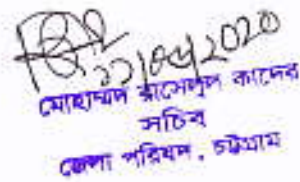 ২২/০৩/2020
মোহাম্মদ রাসেলুল কাদের
সচিব
জেলা পরিষদ, চট্টগ্রাম